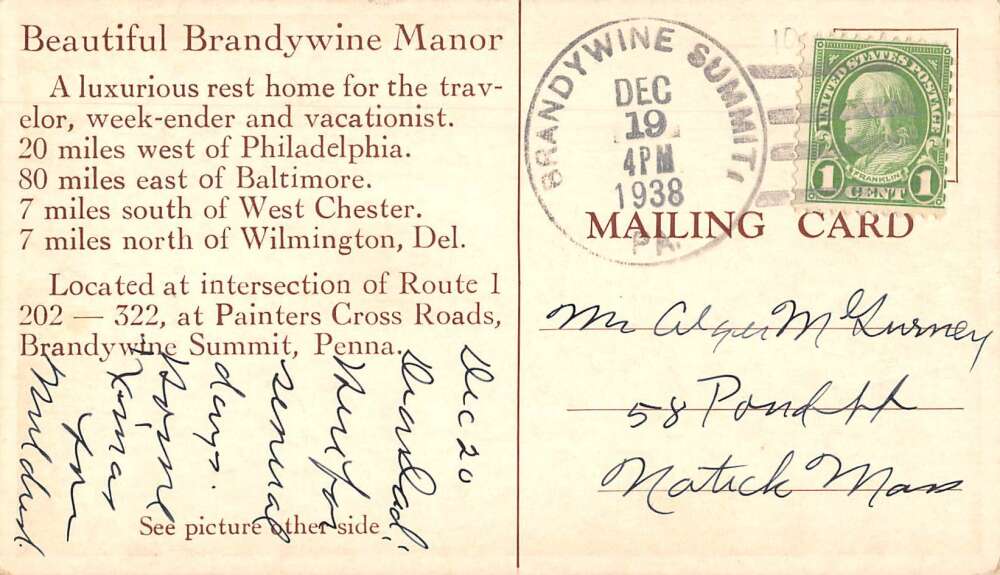 Beautiful Brandywine Manor
A luxurious rest home for the trav-
elor, week-ender and vacationist.
20 miles west of Philadelphia.
80 miles east of Baltimore.
7 miles south of West Chester.
7 miles north of Wilmington, Del.
Located at intersection of Route 1
202 — 322, at Painters Cross Roads,
Brandywine Summit, Penna.
See picture other side
Dec 20
Dear Dad,
Here for
several
days.
Home
Xmas
BRANDYWINE SUMMIT,
DEC
19
4PM
1938
PA.
UNITED STATES POSTAGE
FRANKLIN
1 CENT 1
MAILING CARD
Mr Alger McGurney
58 Pond
Natick Mass